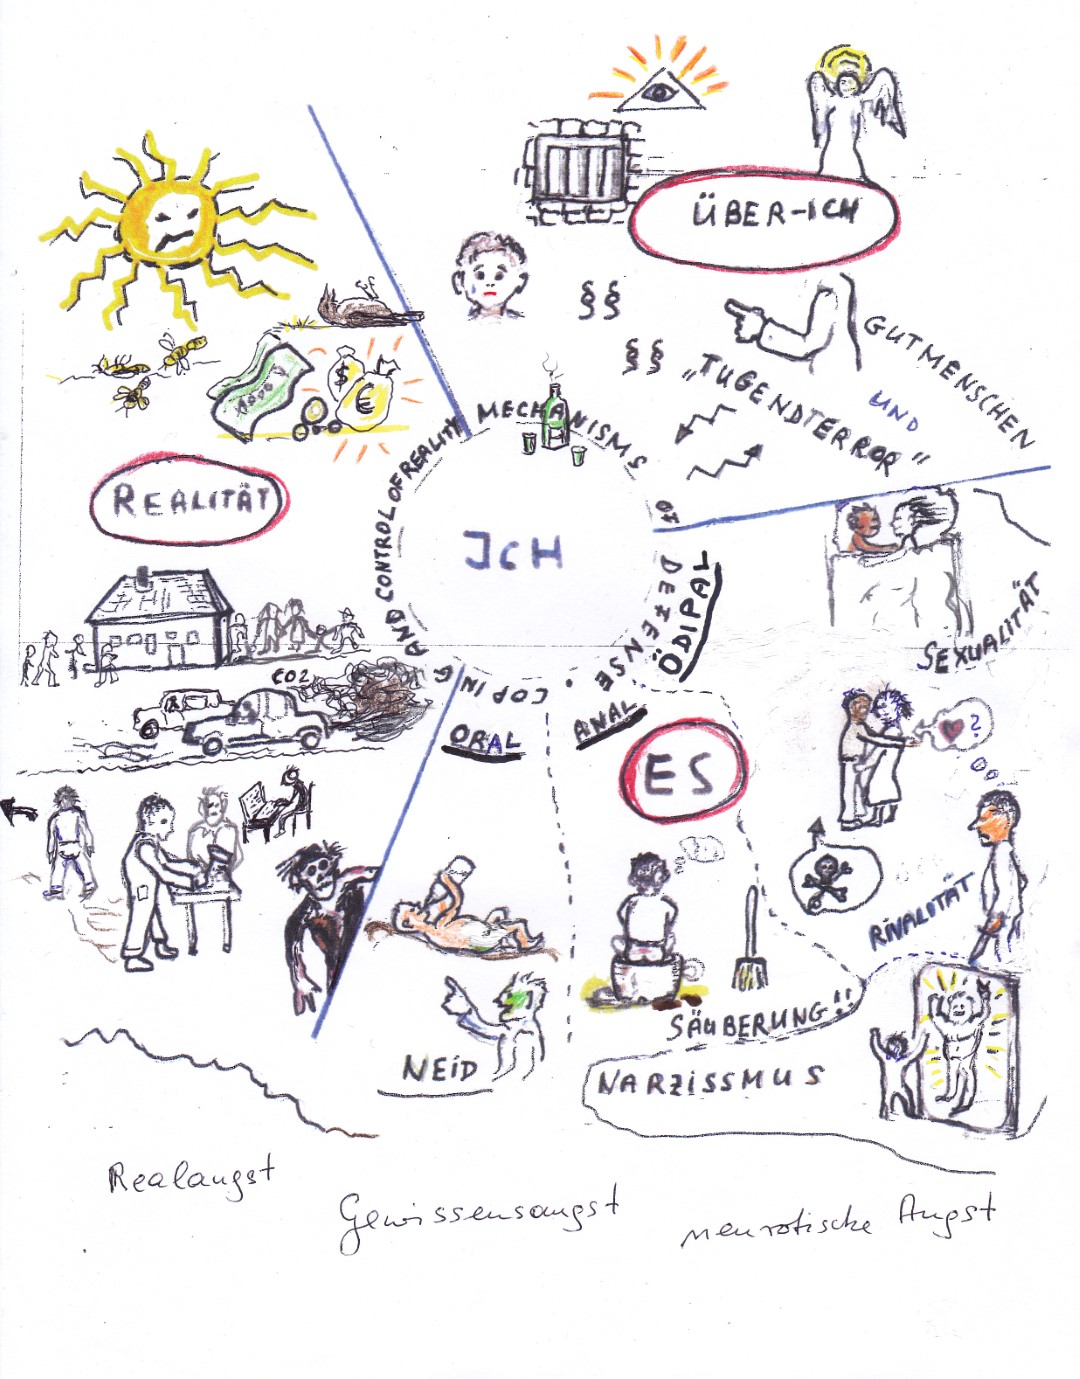 ÜBER-ICH
§§
§§
GUTMENSCHEN
UND
„TUGENDTERROR"
1000
$
€
REALITÄT
MECHANISMS
OF DEFENSE
COPING
AND CONTROL OF REALITY
ICH
ÖDIPAL
SEXUALITÄT
CO2
ORAL
ANAL
ES
?
RIVALITÄT
SÄUBERUNG!!
NEID
NARZISSMUS
Realangst
Gewissensangst
neurotische Angst